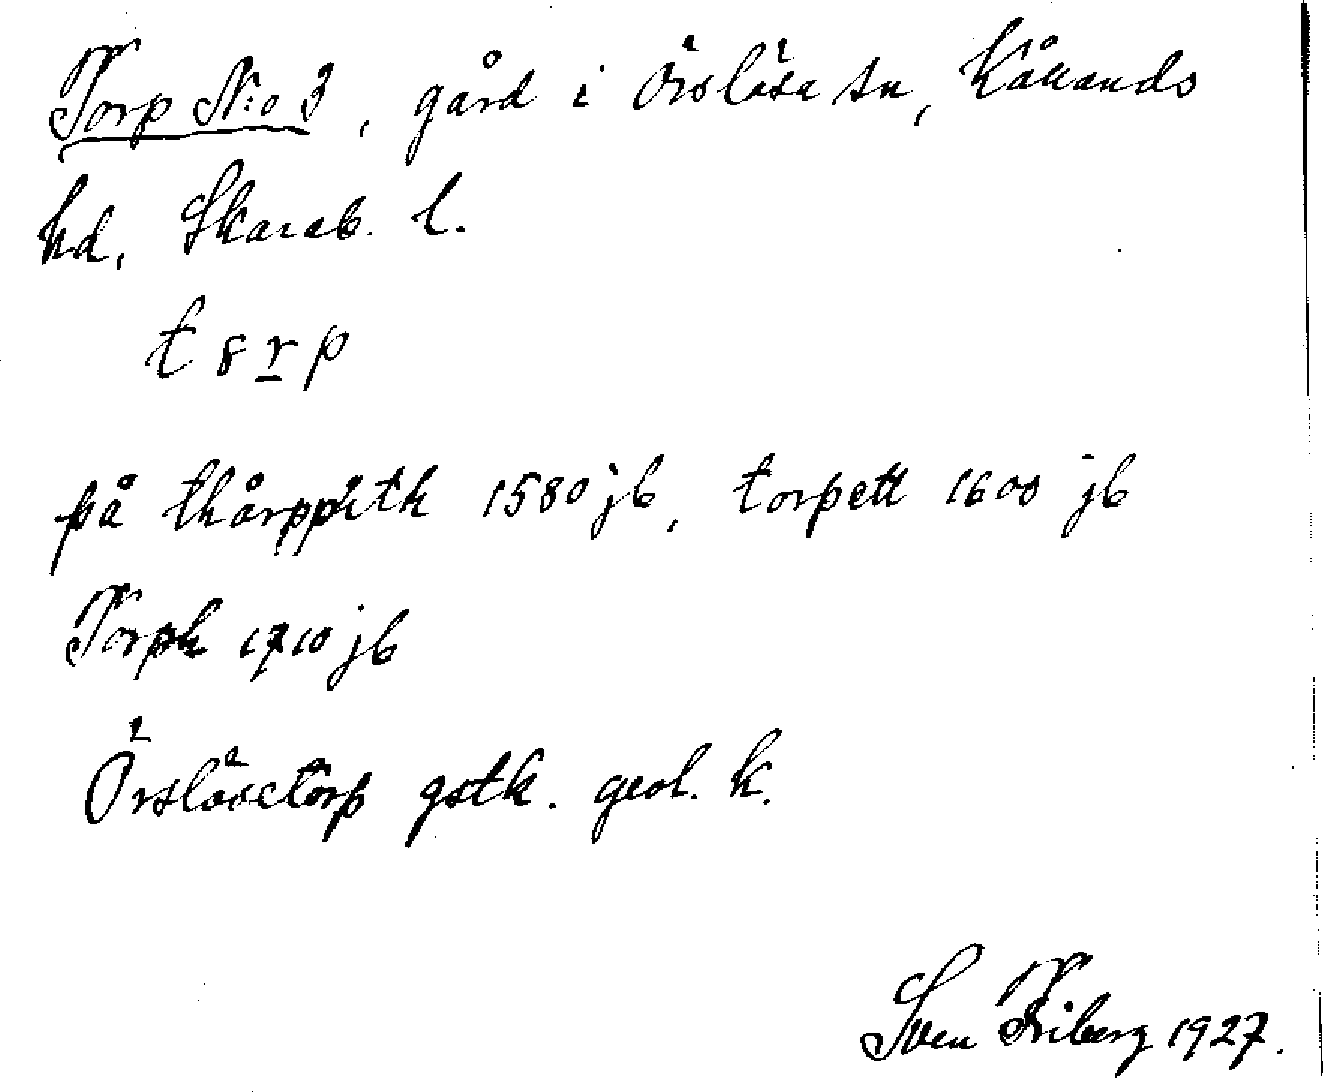 Torp N:o 3, gård i Örslösa sn, Kållands
hd, Skarab. l.
t 8 r p
på thårppith 1580 jb, torpett 1600 jb
Torpk 1710 jb
Örslösetorp gstk. geol. k.
Sven Friberg 1927.